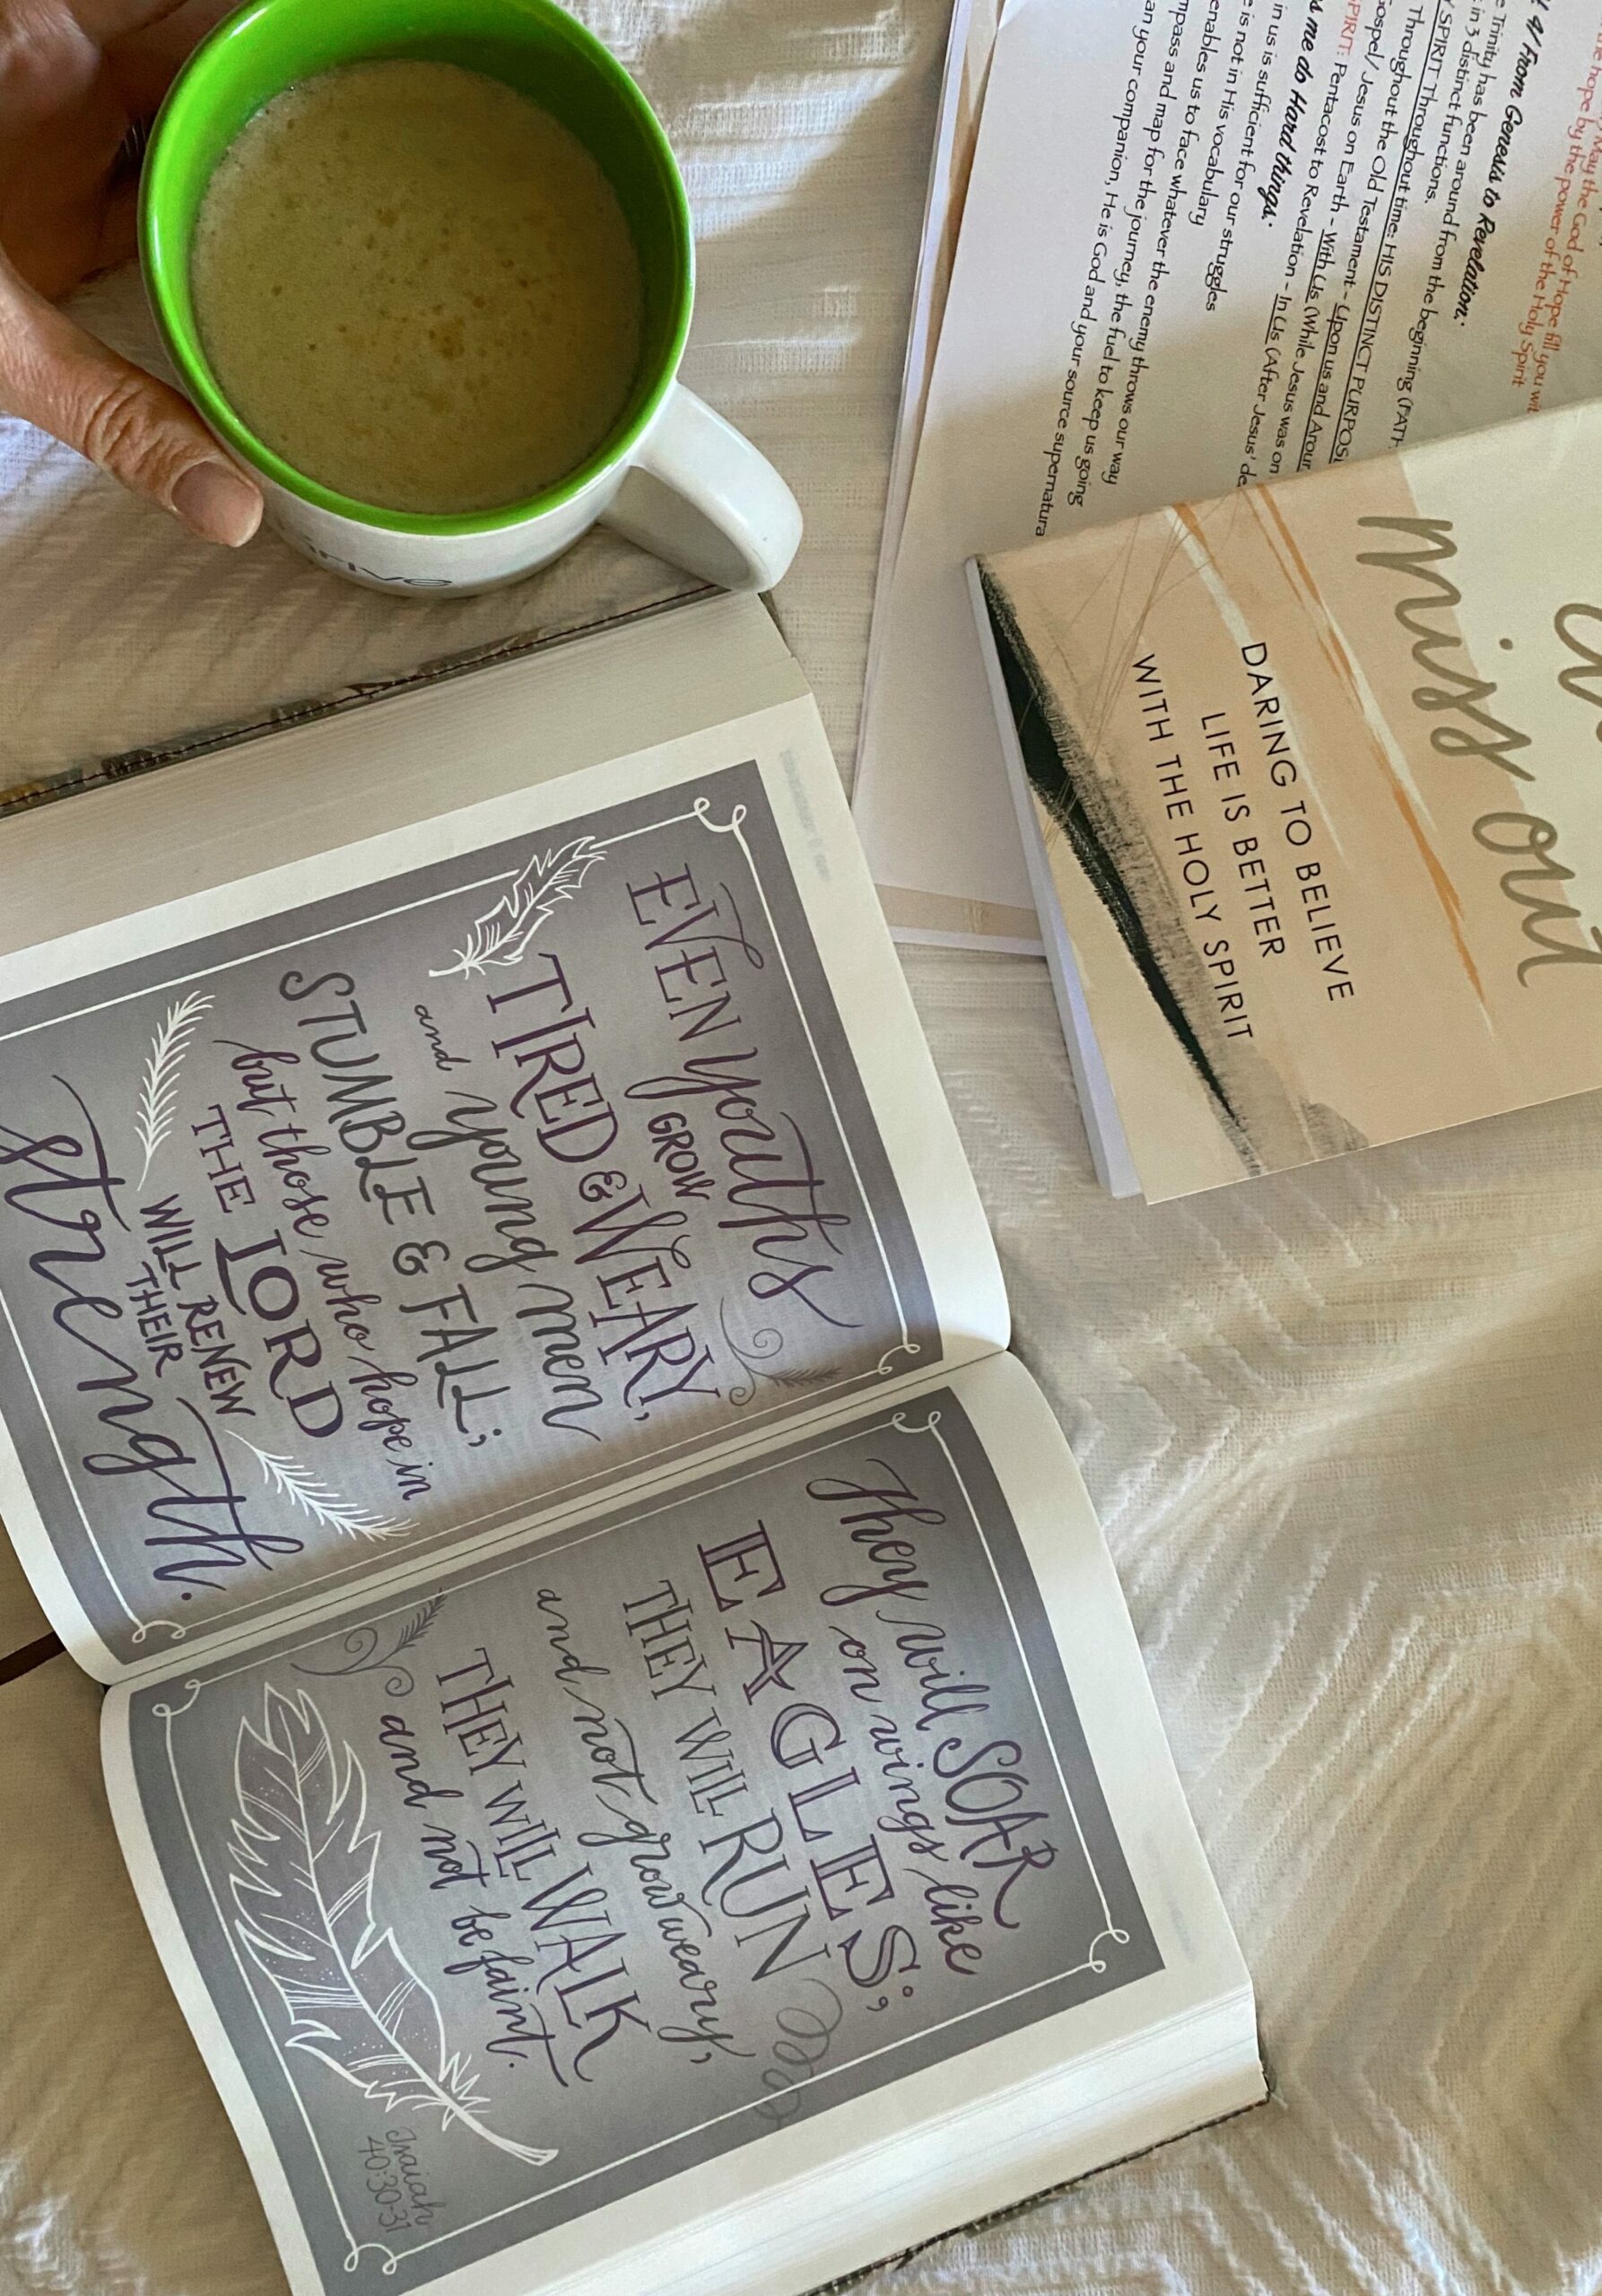 EVEN youths
GROW
TIRED & WEARY,
and young men
STUMBLE & FALL;
but those who hope in
THE LORD
WILL RENEW
THEIR
strength.
They will SOAR
on wings like
EAGLES;
THEY WILL RUN
and not grow weary,
THEY WILL WALK
and not be faint.
Isaiah
40:30-31
miss out
DARING TO BELIEVE
LIFE IS BETTER
WITH THE HOLY SPIRIT
May the God of Hope fill you wi
hope by the power of the Holy Spirit
From Genesis to Revelation:
Trinity has been around from the beginning (FATH
in 3 distinct functions.
SPIRIT Throughout time: HIS DISTINCT PURPOS
Throughout the Old Testament - Upon us and Aroun
ospel/ Jesus on Earth - With Us (While Jesus was on
SPIRIT: Pentacost to Revelation - In Us (After Jesus' de
s me do Hard things.
in us is sufficient for our struggles
e is not in His vocabulary
enables us to face whatever the enemy throws our way
mpass and map for the journey, the fuel to keep us going
an your companion, He is God and your source supernatura
rive